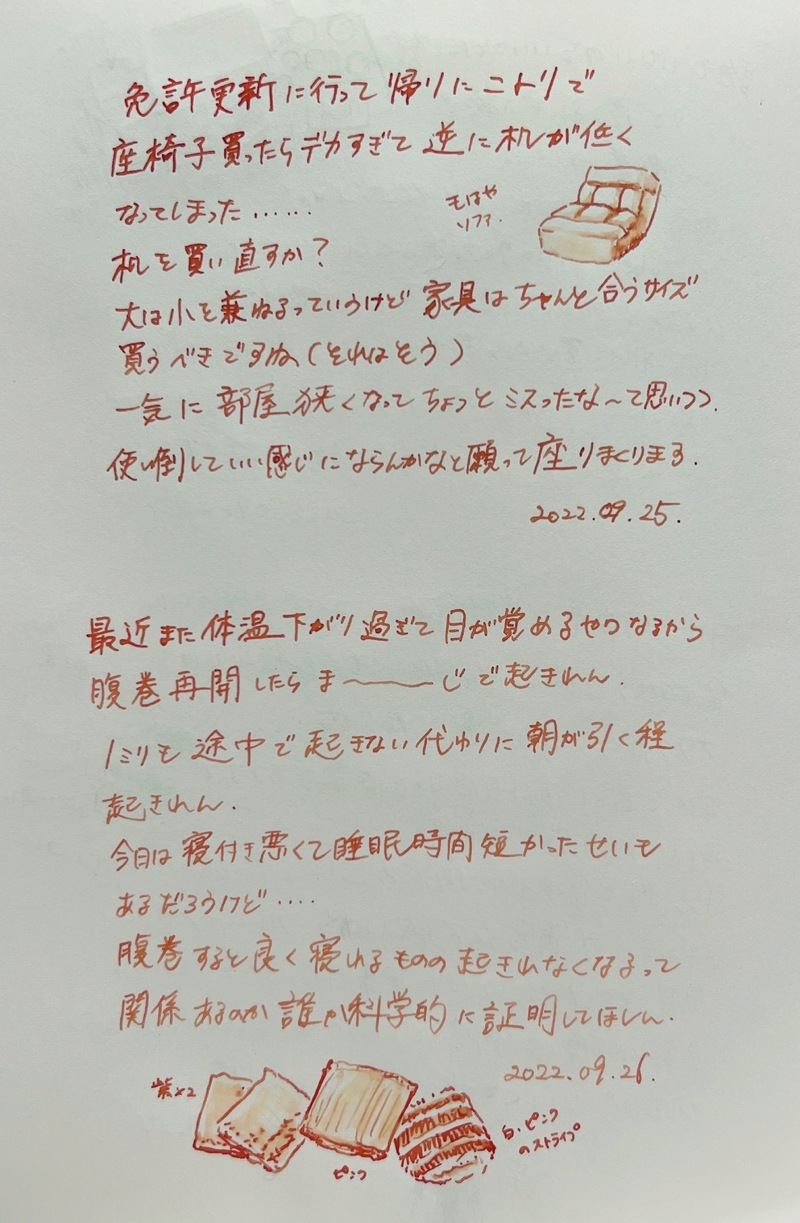 免許更新に行って帰りにニトリで
座椅子買ったらデカすぎて逆に机が低く
なってしまった……
もはや
ソファ.
机を買い直すか?
大は小を兼ねるっていうけど家具はちゃんと合うサイズ
買うべきですね(それはそう)
一気に部屋狭くなってちょっとミスったな〜て思いつつ.
使い倒していい感じにならんかなと願って座りまくりまる.
2022.09.25.
最近また体温下がり過ぎて目が覚めるやつなるから
腹巻再開したらま――――じで起きれん.
1ミリも途中で起きない代わりに朝が引く程
起きれん.
今日は寝付き悪くて睡眠時間短かったせいも
あるだろうけど‥‥
腹巻すると良く寝れるものの起きれなくなるって
関係あるのか誰か科学的に証明してほしん.
2022.09.26.
紫×2
ピンク
白、ピンク
のストライプ